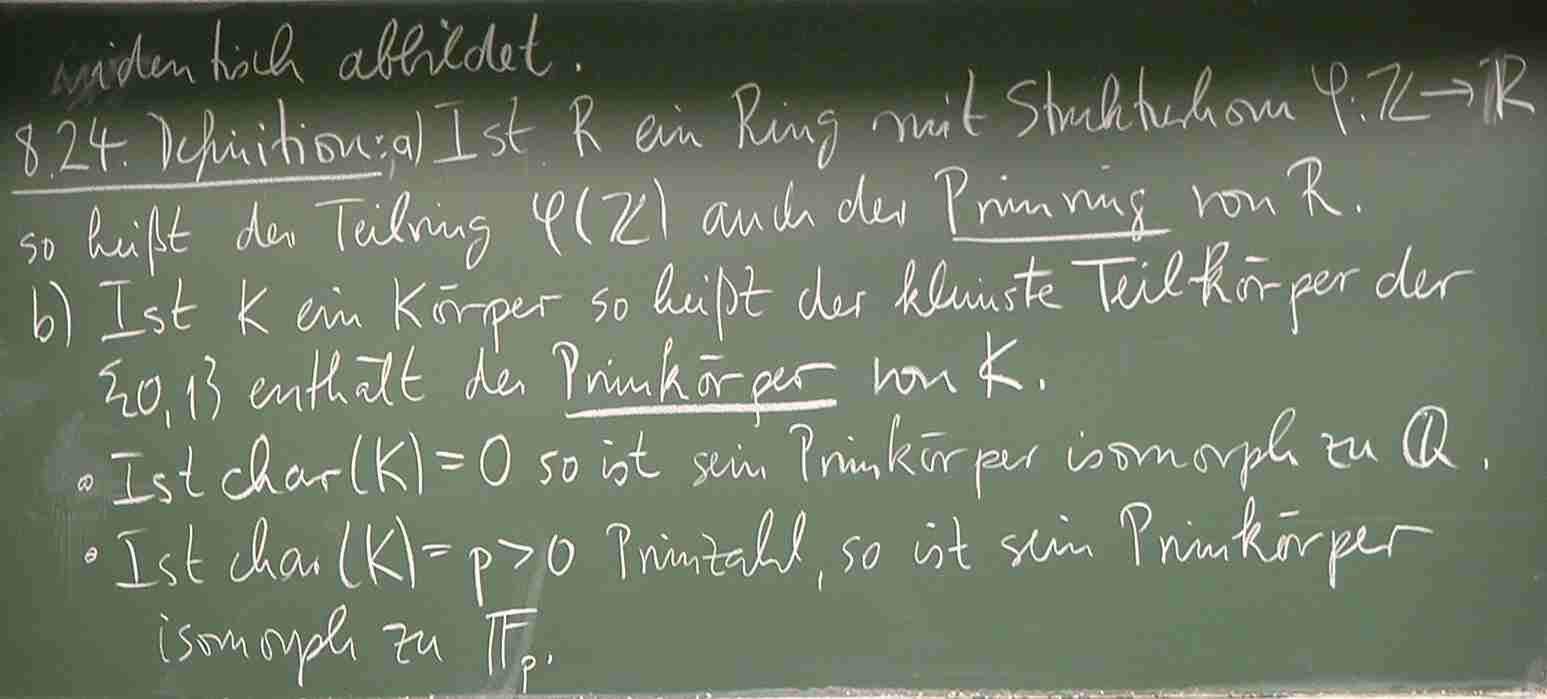 identisch abbildet.
8.24. Definition: a) Ist R ein Ring mit Strukturhom φ: ℤ → R
so heißt der Teilring φ(ℤ) auch der Primring von R.
b) Ist K ein Körper so heißt der kleinste Teilkörper der
{0,1} enthält der Primkörper von K.
• Ist char(K) = 0 so ist sein Primkörper isomorph zu ℚ.
• Ist char(K) = p > 0 Primzahl, so ist sein Primkörper
isomorph zu 𝔽ₚ.